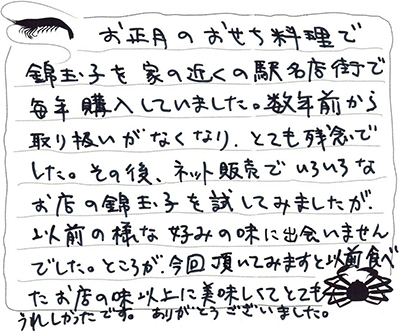 お正月のおせち料理で
錦玉子を家の近くの駅名店街で
毎年購入していました。数年前から
取り扱いがなくなり、とても残念で
した。その後、ネット販売でいろいろな
お店の錦玉子を試してみましたが、
以前の様な好みの味に出会いません
でした。ところが、今回頂いてみますと以前食べ
たお店の味以上に美味しくてとても
うれしかったです。ありがとうございました。